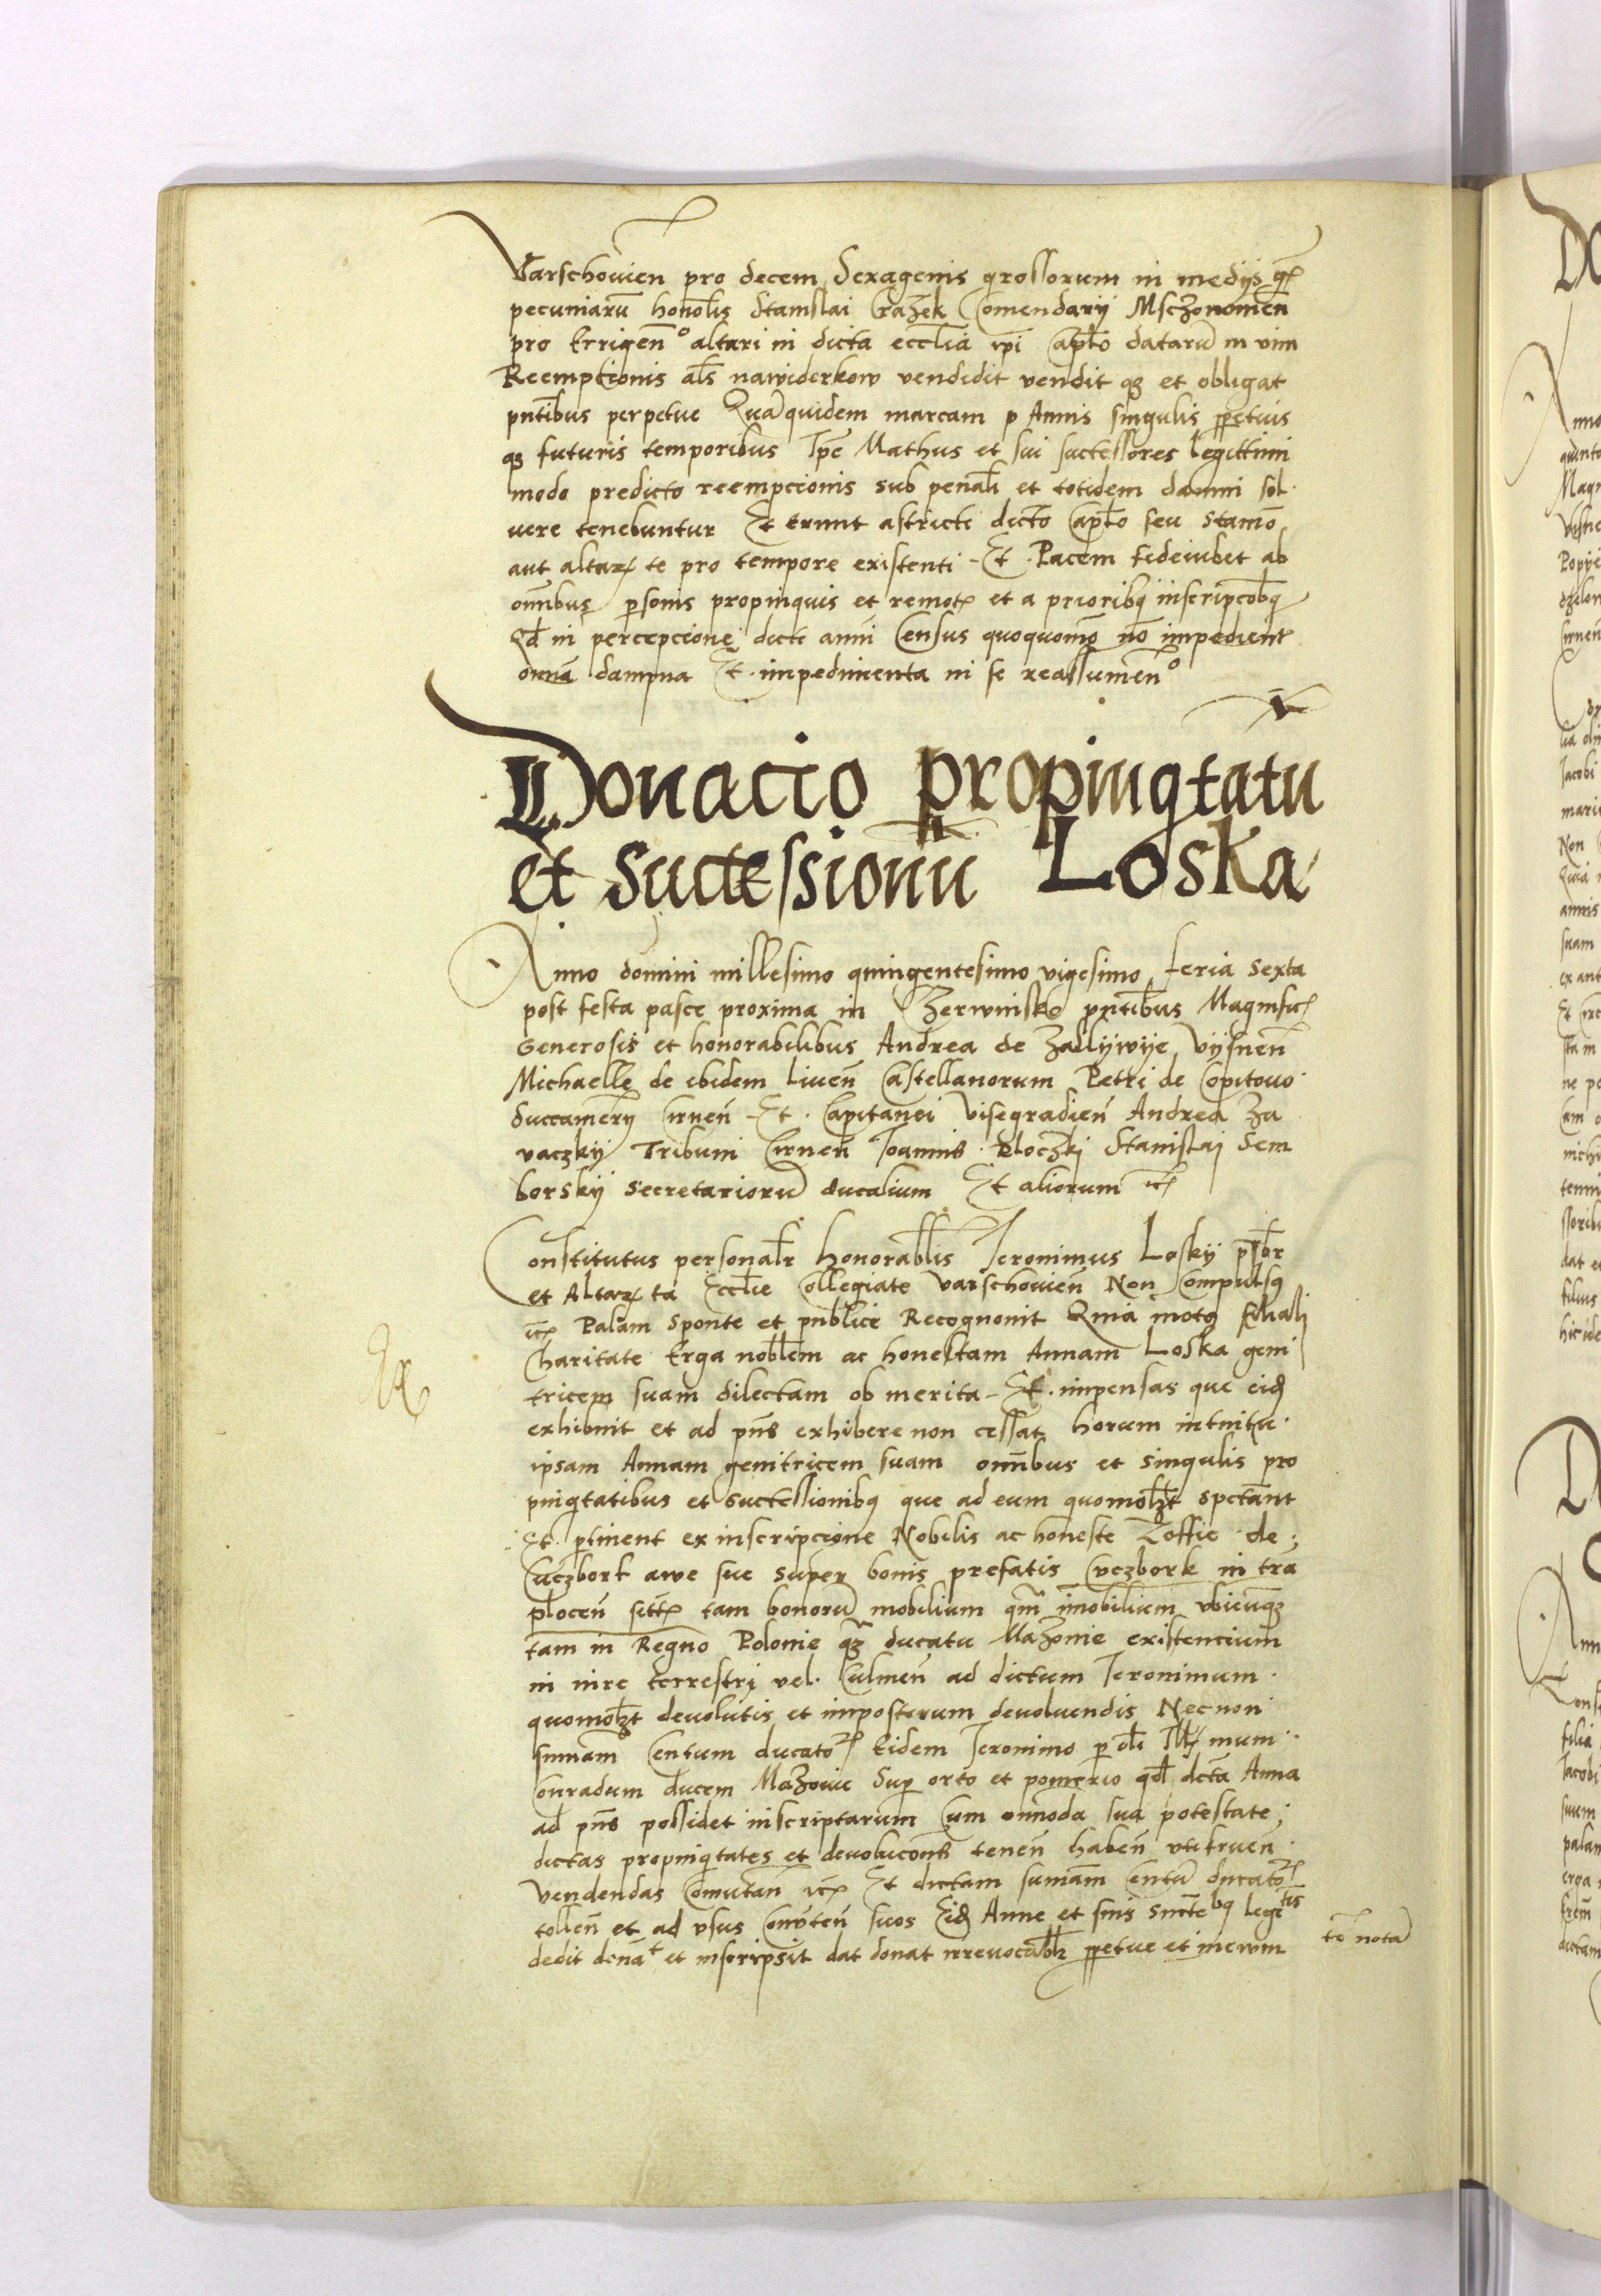 Varschouien pro decem Sexagenis grossorum in medijs gr
pecuniarū honolis Stanislai Crazek Comendarij Mschonomien
pro Errigen° altari in dicta eccl̄ia ipi Capto datarū in vim
Reempcionis al̄s nawiderkow vendidit vendit qz et obligat
pn̄tibus perpetue Quaquidem marcam p Annis singulis ppetuis
qz futuris temporibus Ipe Mathus et sui suctessores legittimi
modo predicto reempcionis sub penali et totidem damni sol
uere tenebuntur Et erunt astricti dicto Capto seu Stanio
aut altar te pro tempore existenti Et Pacem fideiubet ab
omībus psonis propinquis et remot et a prioribq inscripcobq
Qd in percepcione dicti anni Census quoquomō nō impedient
omīa dampna Et impedimenta in se reassumen°
Donacio propinqtatu
et Suctessionū Loska
Anno domini millesimo quingentesimo vigesimo feria sexta
post festa pasce proxima in Zerwinsko pn̄tibus Magnific
Generosis et honorabilibus Andrea de Zallijwije Vijsnen
Michaelle de ibidem Liuen̄ Castellanorum Petri de Copitouo
Succamerij Cirnen̄ Et Capitanei Visegradien̄ Andrea Za
vaczkij Tribuni Cirnen̄ Joannis Ploczkj Stanislaj Sem
borskij Secretariorū ducalium Et aliorum etc
Constitutus personalr honorabl̄is Jeronimus Loskij psbr
et Altar ta Eccl̄ie Collegiate Varschouien̄ Non Compulsq
etc Palam Sponte et publice Recognouit Quia motq filiali
Charitate Erga nobl̄em ac honestam Annam Loska geni
tricem suam dilectam ob merita Et impensas que eidz
exhibuit et ad pn̄s exhibere non cessat horum intuitu
ipsam Annam genitricem suam omībus et singulis pro
pinqtatibus et suctessionibq que ad eum quomolzt spctant
Et ptinent ex inscripcione Nobilis ac honeste Zoffie de
Cuczbork awe sue super bonis prefatis Cuczbork in tra
plocen̄ sitt tam bonorū mobilium qm̄ imobilium vbicunqz
tam in Regno Polonie qz ducatu Mazouie existencium
in iure terrestri vel Culmen̄ ad dictum Jeronimum
quomolzt deuolutis et imposterum deuoluendis Necnon
sumam Centum ducator Eidem Jeronimo p oli Ill mum
Conradum ducem Mazouie Sup orto et pomerio qdl dcta Anna
ad pn̄s possidet inscriptarum Cum omīmoda sua potestate
dictas propinqtates et deuolucon̄s tenen̄ haben̄ vtifruen̄
vendendas Comutan̄ etc Et dictam sumam Centū ducator
tollen̄ et ad vsus Conuten̄ suos Eidz Anne et suis sucte bq legi tis
dedit dona t et inscripsit dat donat irreuocablr ppetue et in ewm
te nota